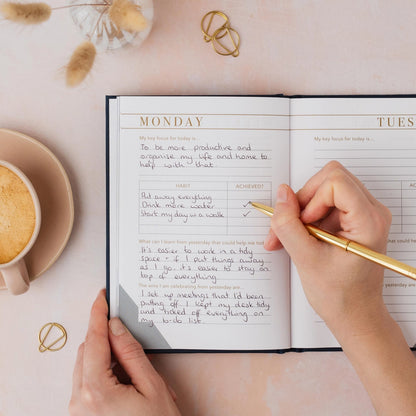 MONDAY
My key focus for today is...
To be more productive and
organise my life and home to
help with that.
HABIT ACHIEVED
Put away everything
Drink more water
Start my day in a walk
What can I learn from yesterday that could help me today
It's easier to work in a tidy
space + if I put things away
as I go, it's easier to stay on
top of everything.
The wins I am celebrating from yesterday are...
I set up meetings that I'd been
putting off. I kept my desk tidy
and ticked off everything on
my to-do list.
TUES
My key focus for today is...